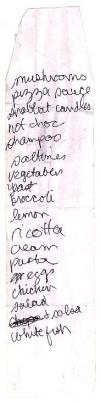 mushrooms
pizza sauce
shabbat candles
hot choc
shampoo
saltines
vegetables
yeast
broccoli
lemon
ricotta
cream
pasta
eggs
chicken
salad
& salsa
white fish